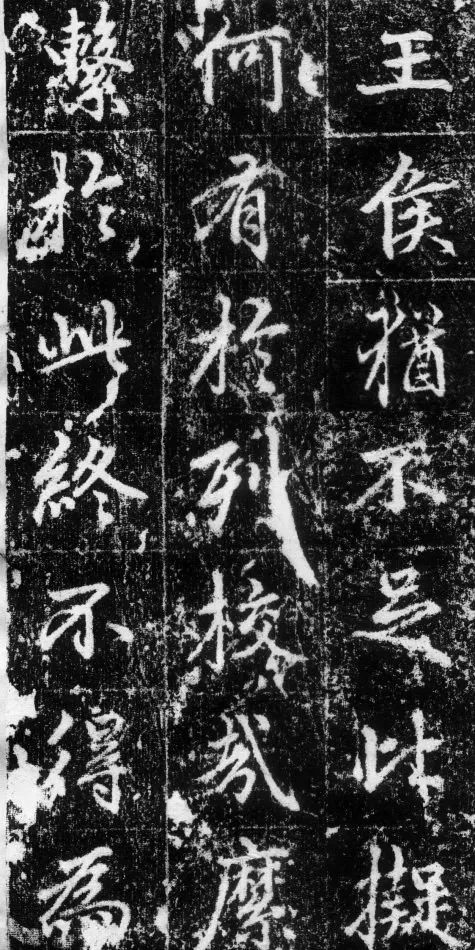 王侯猶不足比擬
何有於列校哉糜
繫於此終不得為